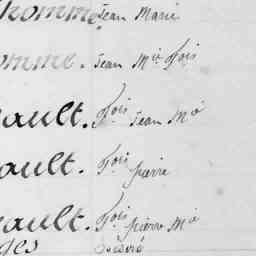 homme. Jean Marie
omme. Jean Mie Fois
ault. Fois Jean Mie
ault. Fois pierre
ault. Fois pierre Mie
ges Désiré